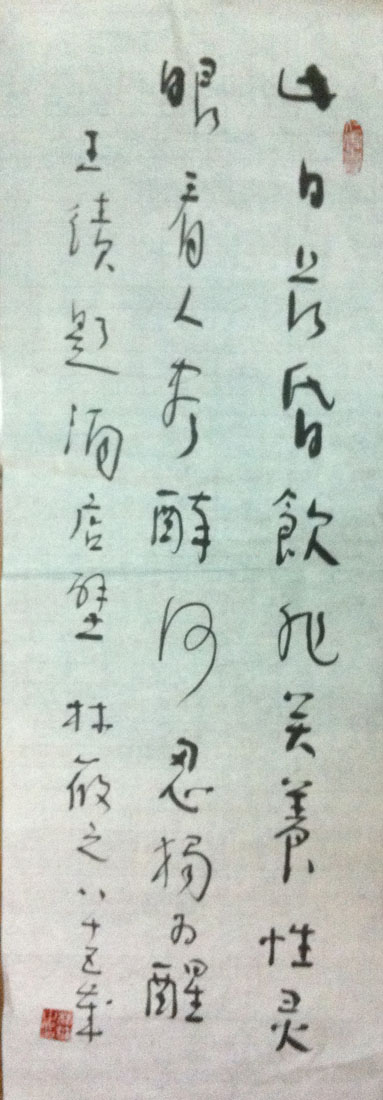 此日长昏飲非关養性灵
眼看人尽醉何忍獨为醒
王績題酒店壁 林筱之八十五歲